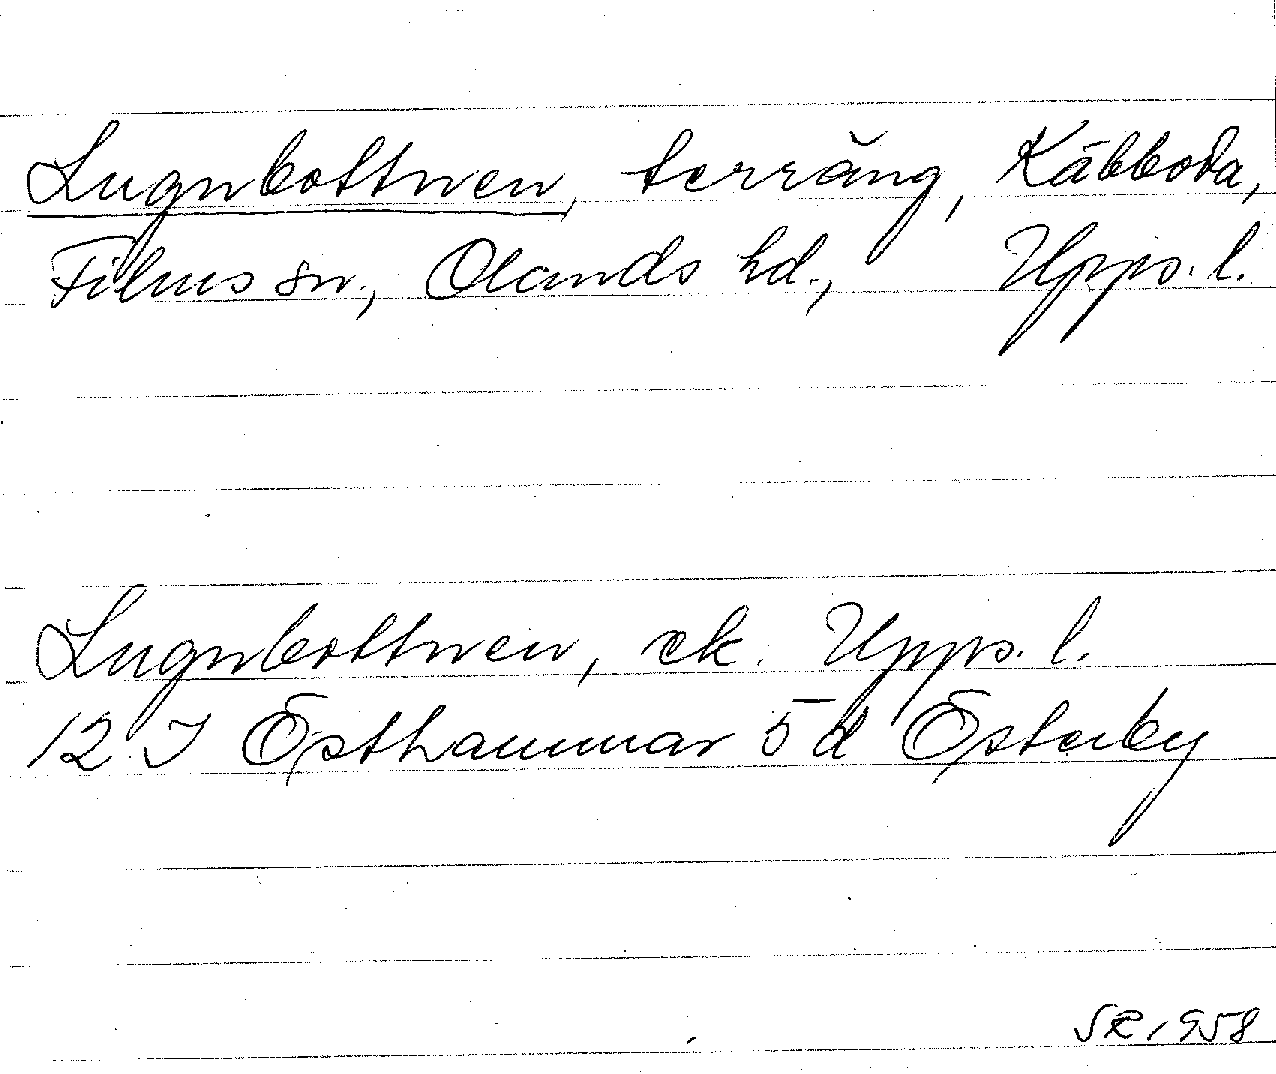 Lugnbottnen, terräng, Käbboda,
Films sn., Olands hd., Upps. l.
Lugnbottnen, ek. Upps. l.
12 I Östhammar 5 d Österby
SR 1958